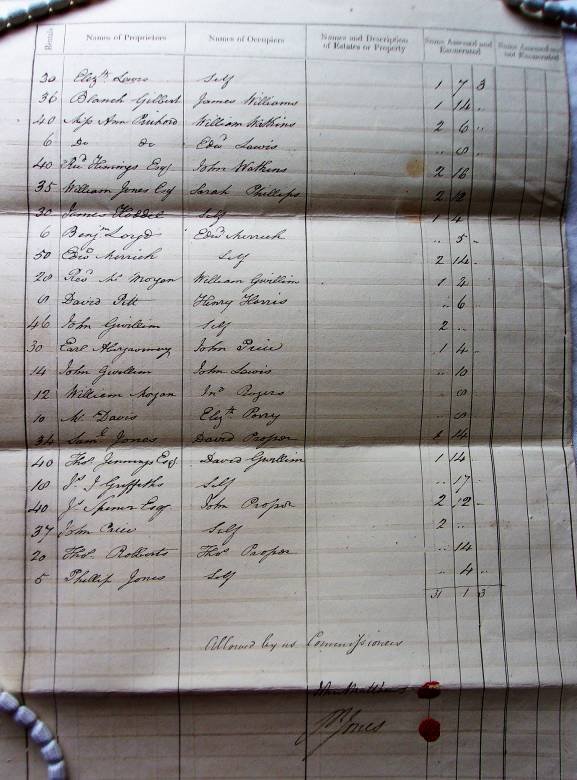 Rentals Names of Proprietors Names of Occupiers Names and Description of Estates or Property Sums Assessed and Exonerated Sums Assessed and not Exonerated
30 Elizth. Lewis Self 1 7 3
36 Blanch Gilbert James Williams 1 14 ..
40 Miss Ann Prichard William Watkins 2 6 ..
6 Do Do Edwd Lewis .. 8 ..
40 Revd Hemings Esq John Watkins 2 16
35 William Jones Esq Sarah Phillips 2 12
30 James Hoddel Self 1 4
6 Benjm Loyd Edwd Merrick .. 5 ..
50 Edwd Merrick Self 2 14 ..
20 Revd Mr Morgan William Gwillim 1 4
8 David Pitt Henry Harris .. 6 ..
46 John Gwillim Self 2 ..
30 Earl Abergavenny John Price 1 4 ..
14 John Gwillim John Lewis .. 10
12 William Morgan Jno Rogers .. 8
10 Mr Davis Elizth Parry .. 8
34 Saml Jones David Prosser 14
40 Thos Jennings Esq David Gwillim 1 14
18 Js J Griffiths Self .. 17 ..
40 Js Spencer Esq John Prosser 2 12 ..
37 John Price Self 2 ..
20 Thos Roberts Thos Prosser .. 14
5 Phillip Jones Self .. 4 ..
31 1 3
Allowed by us Commissioners
Jones